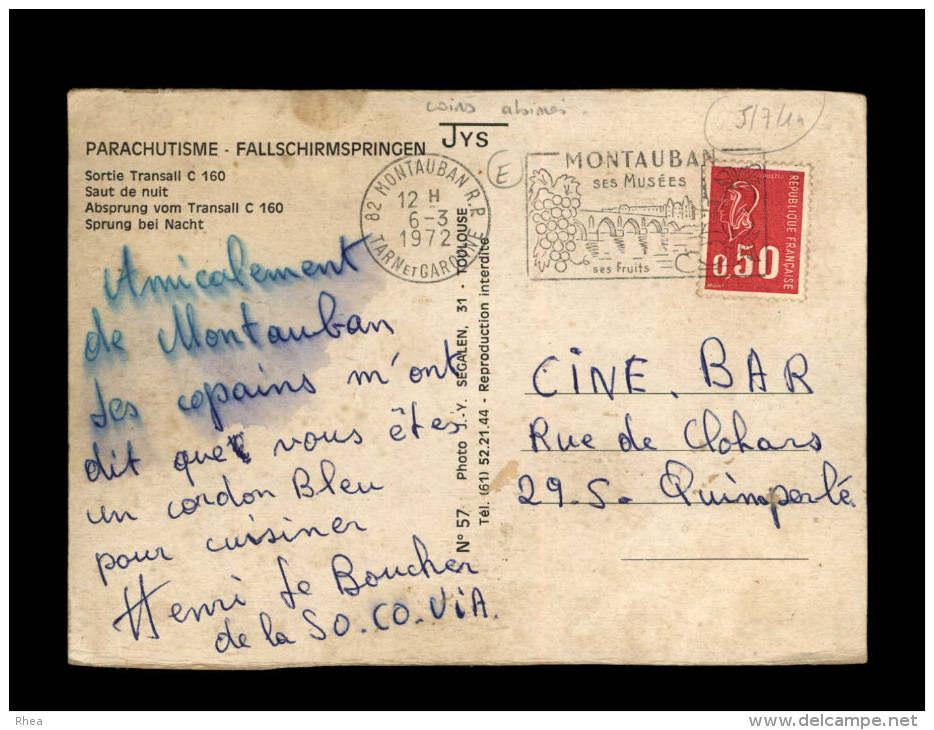 coins abimés.
5/7/14
JYS
PARACHUTISME - FALLSCHIRMSPRINGEN
Sortie Transall C 160
Saut de nuit
Absprung vom Transall C 160
Sprung bei Nacht
82 MONTAUBAN R.P.
12 H
6-3
1972
TARN ET GARONNE
E
MONTAUBAN
SES MUSÉES
ses Fruits
POSTES
RÉPUBLIQUE FRANÇAISE
0,50
Amicalement
de Montauban
Les copains m'ont
dit que vous êtes
un cordon Bleu
pour cuisiner
Henri Le Boucher
de la SO.CO.ViA.
N° 57 Photo J.-Y. SEGALEN, 31 - TOULOUSE
Tél. (61) 52.21.44 - Reproduction interdite
CINE. BAR
Rue de Clohars
29.S. Quimperlé
Rhea
www.delcampe.net